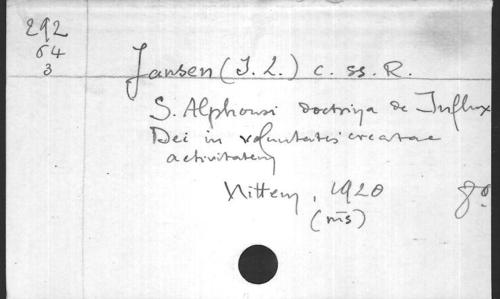 292
64
3
Jansen (J. L.) c. ss. R.
S. Alphonsi doctrina de Influx
Dei in voluntatis creatae
activitatem
Wittem, 1920 8º
(ms)